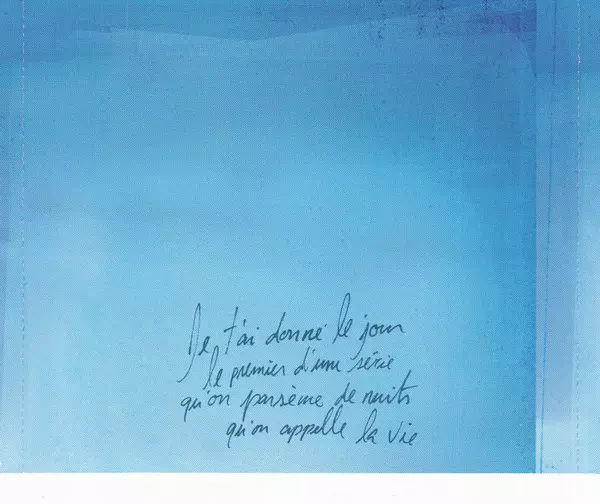 Je t'ai donné le jour
le premier d'une série
qu'on parsème de nuits
qu'on appelle la vie